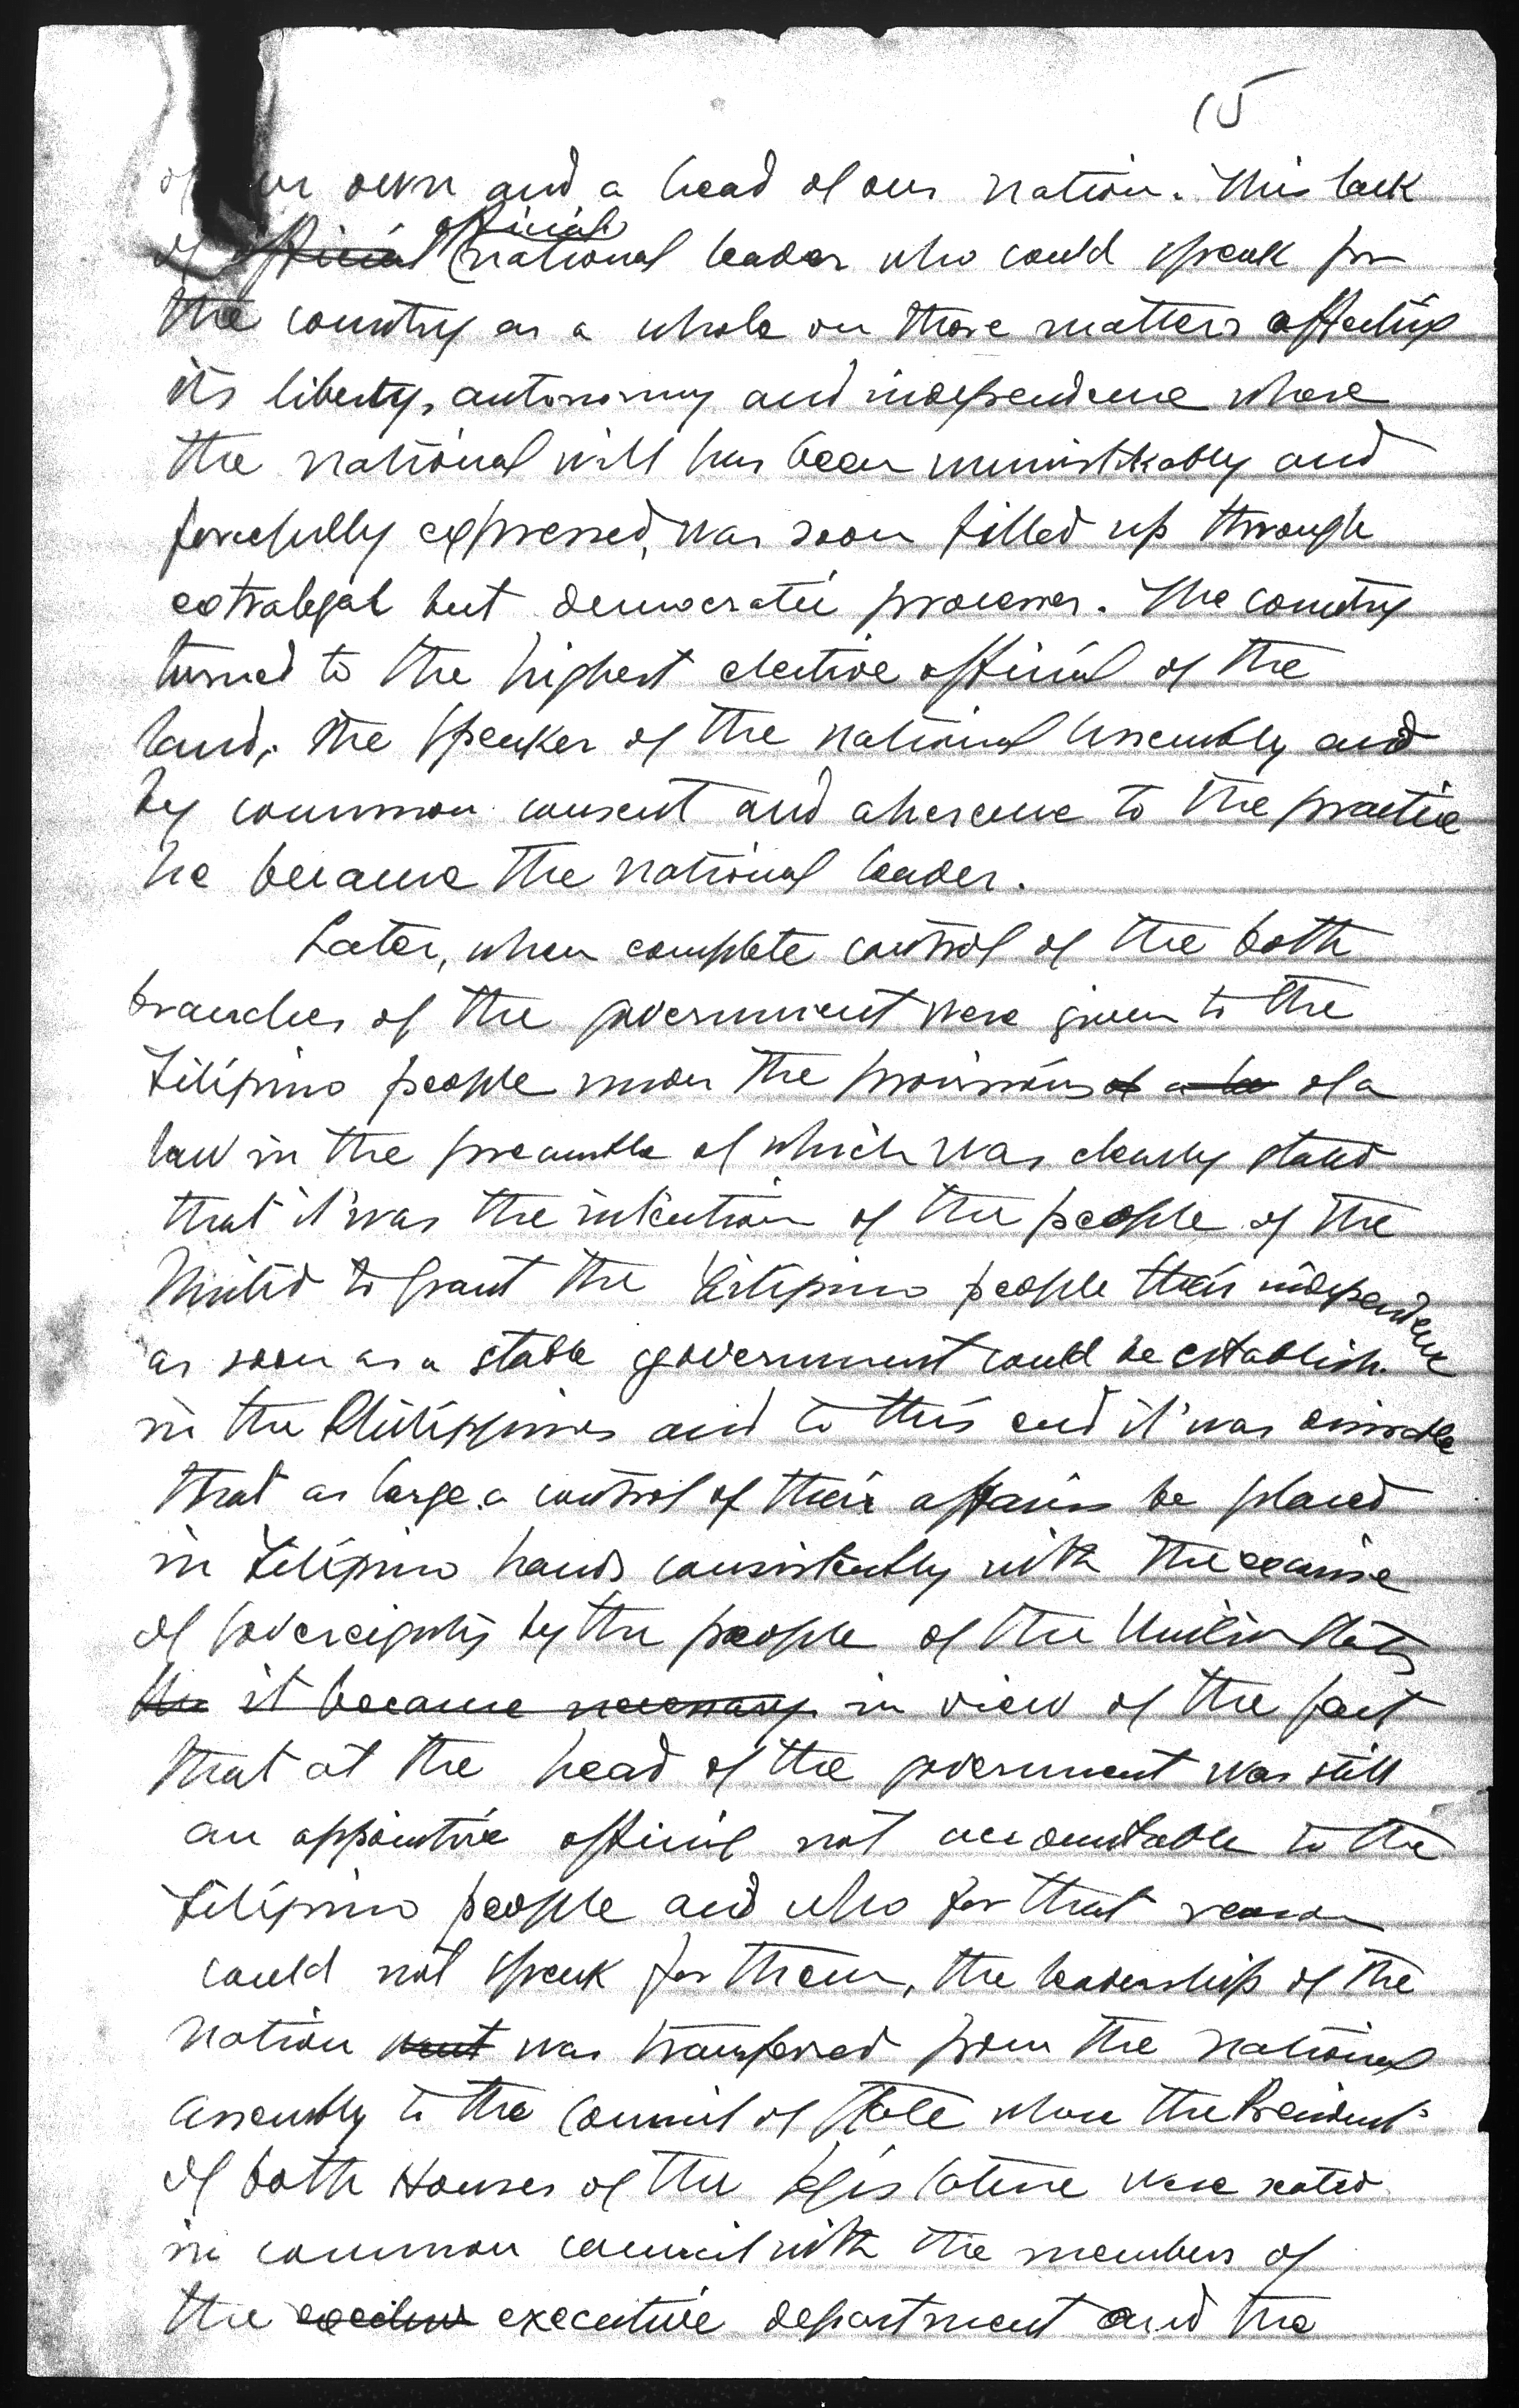 15
of our own and a head of our nation. This lack
official
of official national leader who could speak for
the country as a whole on those matters affecting
its liberty, autonomy and independence where
the national will has been unmistikably and
forcefully expressed, was soon filled up through
extralegal but democratic processes. The country
turned to the highest elective official of the
land, the Speaker of the National Assembly and
by common consent and aherence to the practice
he became the national leader.
Later, when complete control of the both
branches of the government were given to the
Filipino people under the provisions of a la of a
law in the preamble of which was clearly stated
that it was the intention of the people of the
United to grant the Filipino people their independence
as soon as a stable government could be establish
in the Philippines and to this end it was desirable
that as large a control of their affairs be placed
in Filipino hands consistently with the exercise
of sovereignty by the people of the United States
the it became necessary in view of the fact
that at the head of the government was still
an appointive official not accountable to the
Filipino people and who for that reason
could not speak for them, the leadership of the
nation went was transfered from the National
Assembly to the Council of State where the Presidents
of both Houses of the Legislature were seated
in common council with the members of
the executive department and the